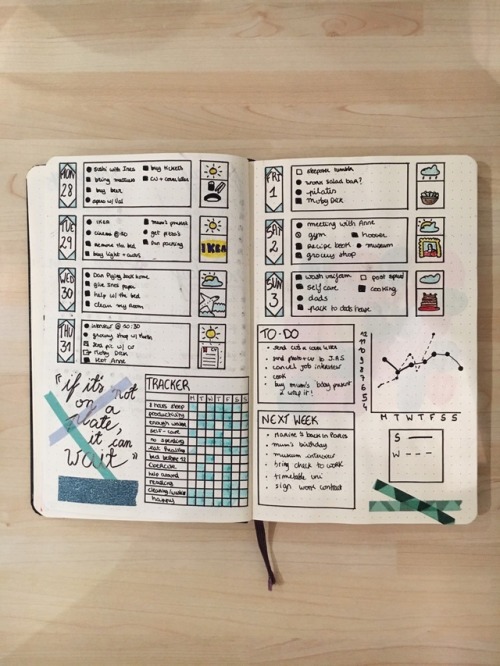 MON
28
sushi with Ines
buy tickets
being nature
CV + cover letter
buy beer
apero w/ Val
TUE
29
IKEA
mum's present
cinema @
get pizza's
remove the bed
fun packing
buy light + curtains
IKEA
WED
30
Dan flying back home
give Ines paper
help w/ the bed
clean my room
THU
31
interview @ 10:30
grocery shop w/
CV
Moby Dick
text Anne
"if it's not
on a
date,
it can
wait"
TRACKER
M T W T F S S
8 hours sleep
productivity
enough water
self-care
no spending
eat healthy
bed before 12
exercise
help around
reading
cleaning
happy
FRI
1
sleepover
work salad bar?
pilatis
Moby Dick
SAT
2
meeting with Anne
gym
hoover
recipe book
museum
grocery shop
SUN
3
wash uniform
post
self care
cooking
dads
pack to dads house
TO-DO
send cv & cover letter
send
cancel job interview
cook
buy mum's bday present
& wrap it!
NEXT WEEK
back in Paris
mum's birthday
museum interview
bring check to work
timetable uni
sign work contract
12
11
10
9
8
7
6
5
4
M T W T F S S
S
W